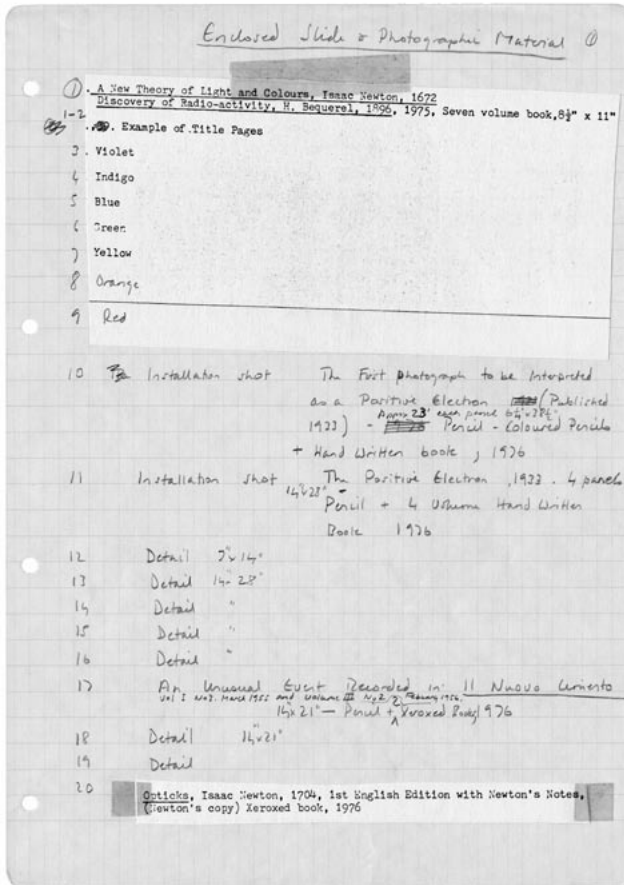 Enclosed Slide & Photographic Material ①
①. A New Theory of Light and Colours, Isaac Newton, 1672
Discovery of Radio-activity, H. Bequerel, 1896, 1975, Seven volume book, 8½" x 11"
1-2 . Example of Title Pages
3. Violet
4 Indigo
5 Blue
6 Green
7 Yellow
8 Orange
9 Red
10 Installation shot The First photograph to be Interpreted
as a Positive Electron (Published
Approx 23' each panel
1933) - Pencil - Coloured Pencils
+ Hand Written book, 1976
11 Installation shot The Positive Electron, 1933. 4 panels
14"x28" -
Pencil + 4 Volume Hand Written
Book 1976
12 Detail 7"x14"
13 Detail 14"x28"
14 Detail "
15 Detail "
16 Detail "
17 An Unusual Event Recorded in: Il Nuovo Cimento
Vol I No3. March 1955 and Volume III No2 February 1956.
14"x21" — Pencil + 2 Xeroxed Books 1976
18 Detail 14"x21"
19 Detail
20 Opticks, Isaac Newton, 1704, 1st English Edition with Newton's Notes,
(Newton's copy) Xeroxed book, 1976